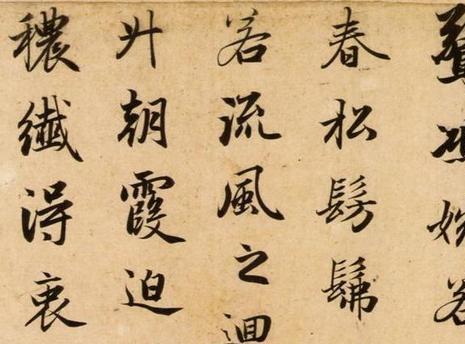 若
春松髣髴
若流風之迴
升朝霞迫
穠纖得衷